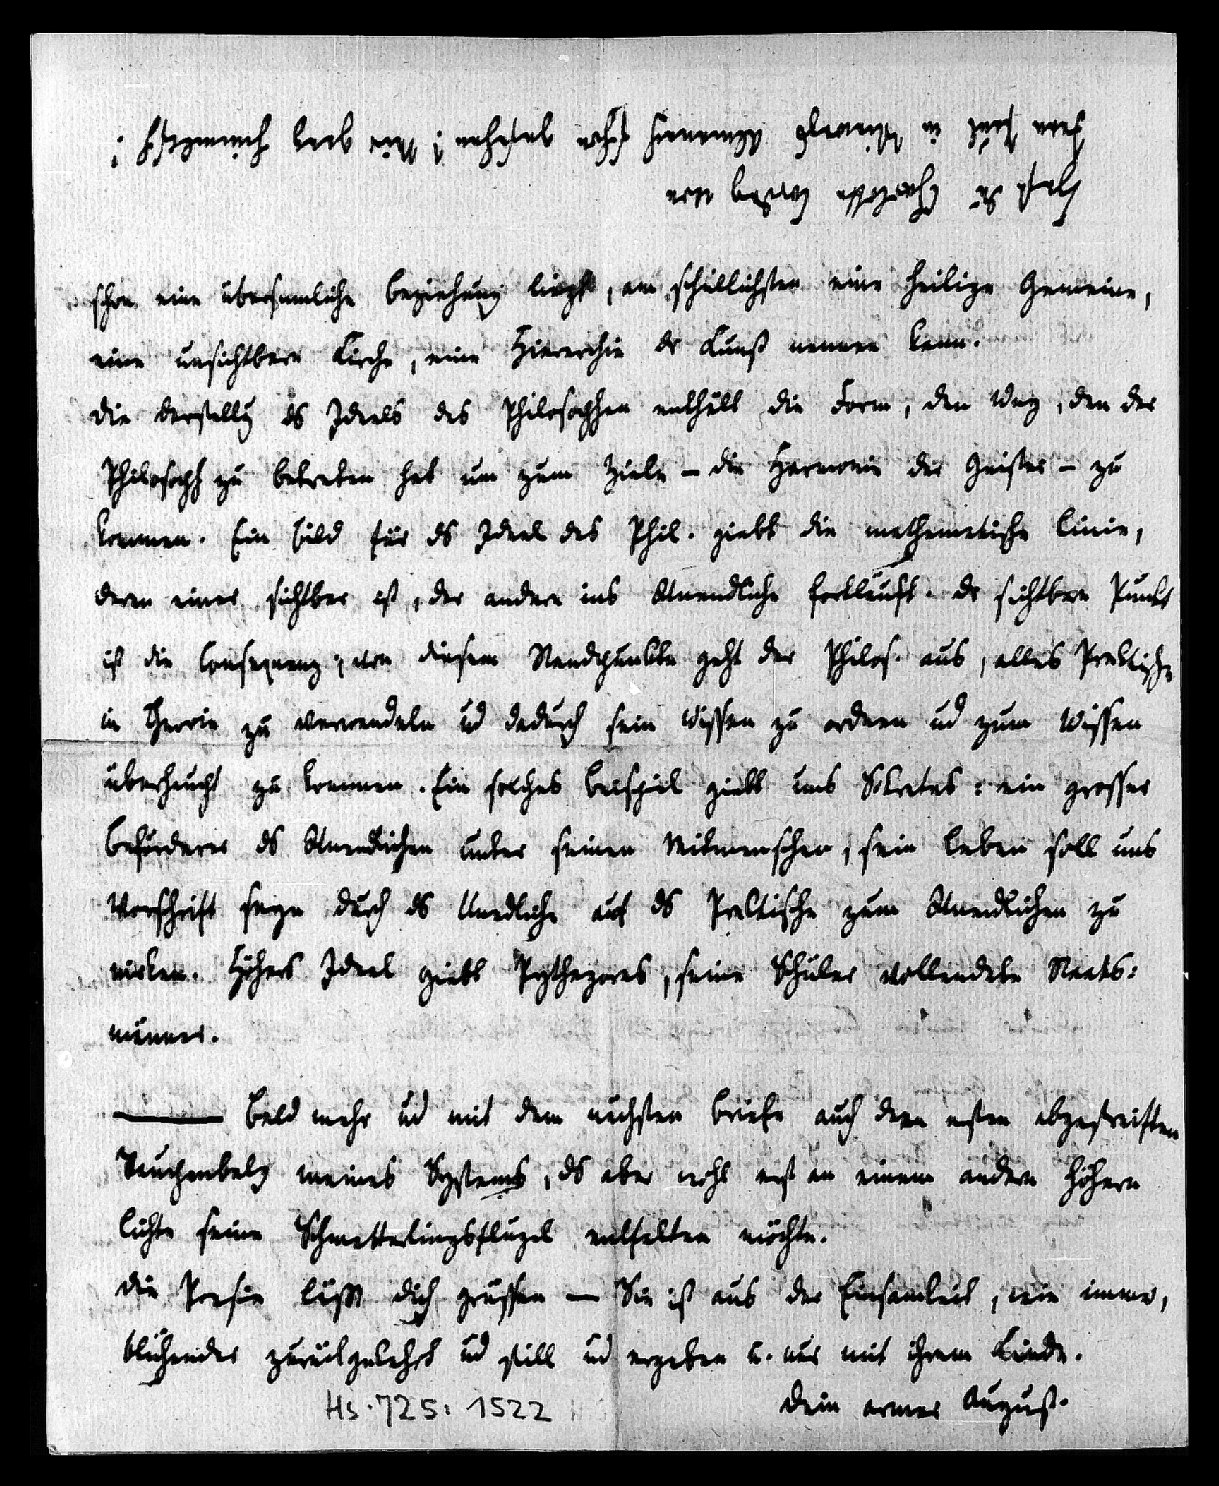 schon eine übersinnliche Beziehung liegt, am schiklichsten eine heilige Gemeine,
eine unsichtbare Kirche, eine Hierarchie der Kunst nennen kann.
Die Darstellg ds Ideals des Philosophen enthält die Form, den Weg, den der
Philosoph zu betreten hat um zum Ziele – die Harmonie des Geistes – zu
kommen. Ein Bild für ds Ideal des Phil. giebt die mathematische Linie,
deren einer sichtbar ist, der andere ins Unendliche fortläuft. Dr sichtbare Punkt
ist die Consequenz, von diesem Standpunkte geht der Philos. aus, alles Praktische
in Theorie zu verwandeln ud dadurch sein Wissen zu ordnen ud zum Wissen
überhaupt zu kommen. Ein solches Beispiel giebt uns Sokrates: ein grosser
Beförderer ds Unendlichen unter seinen Mitmenschen, sein Leben soll uns
Vorschrift seyn durch ds Unedliche auf ds Praktische zum Unendlichen zu
wirken. Höhers Ideal giebt Pythagoras, seine Schüler vollendete Staats:
männer.
Bald mehr ud mit dem nächsten Briefe auch den ersten abgestreiften
meines Systems, ds aber wohl erst an einem andern höhern
Lichte seine Schmetterlingsflügel entfalten möchte.
Die Poesie läßt dich grüssen — Sie ist aus der Einsamkeit, wie immer,
blühender zurükgekehrt ud still ud ergeben u. nur mit ihrem Kinde.
Dein armer August.
Hs. 725: 1522